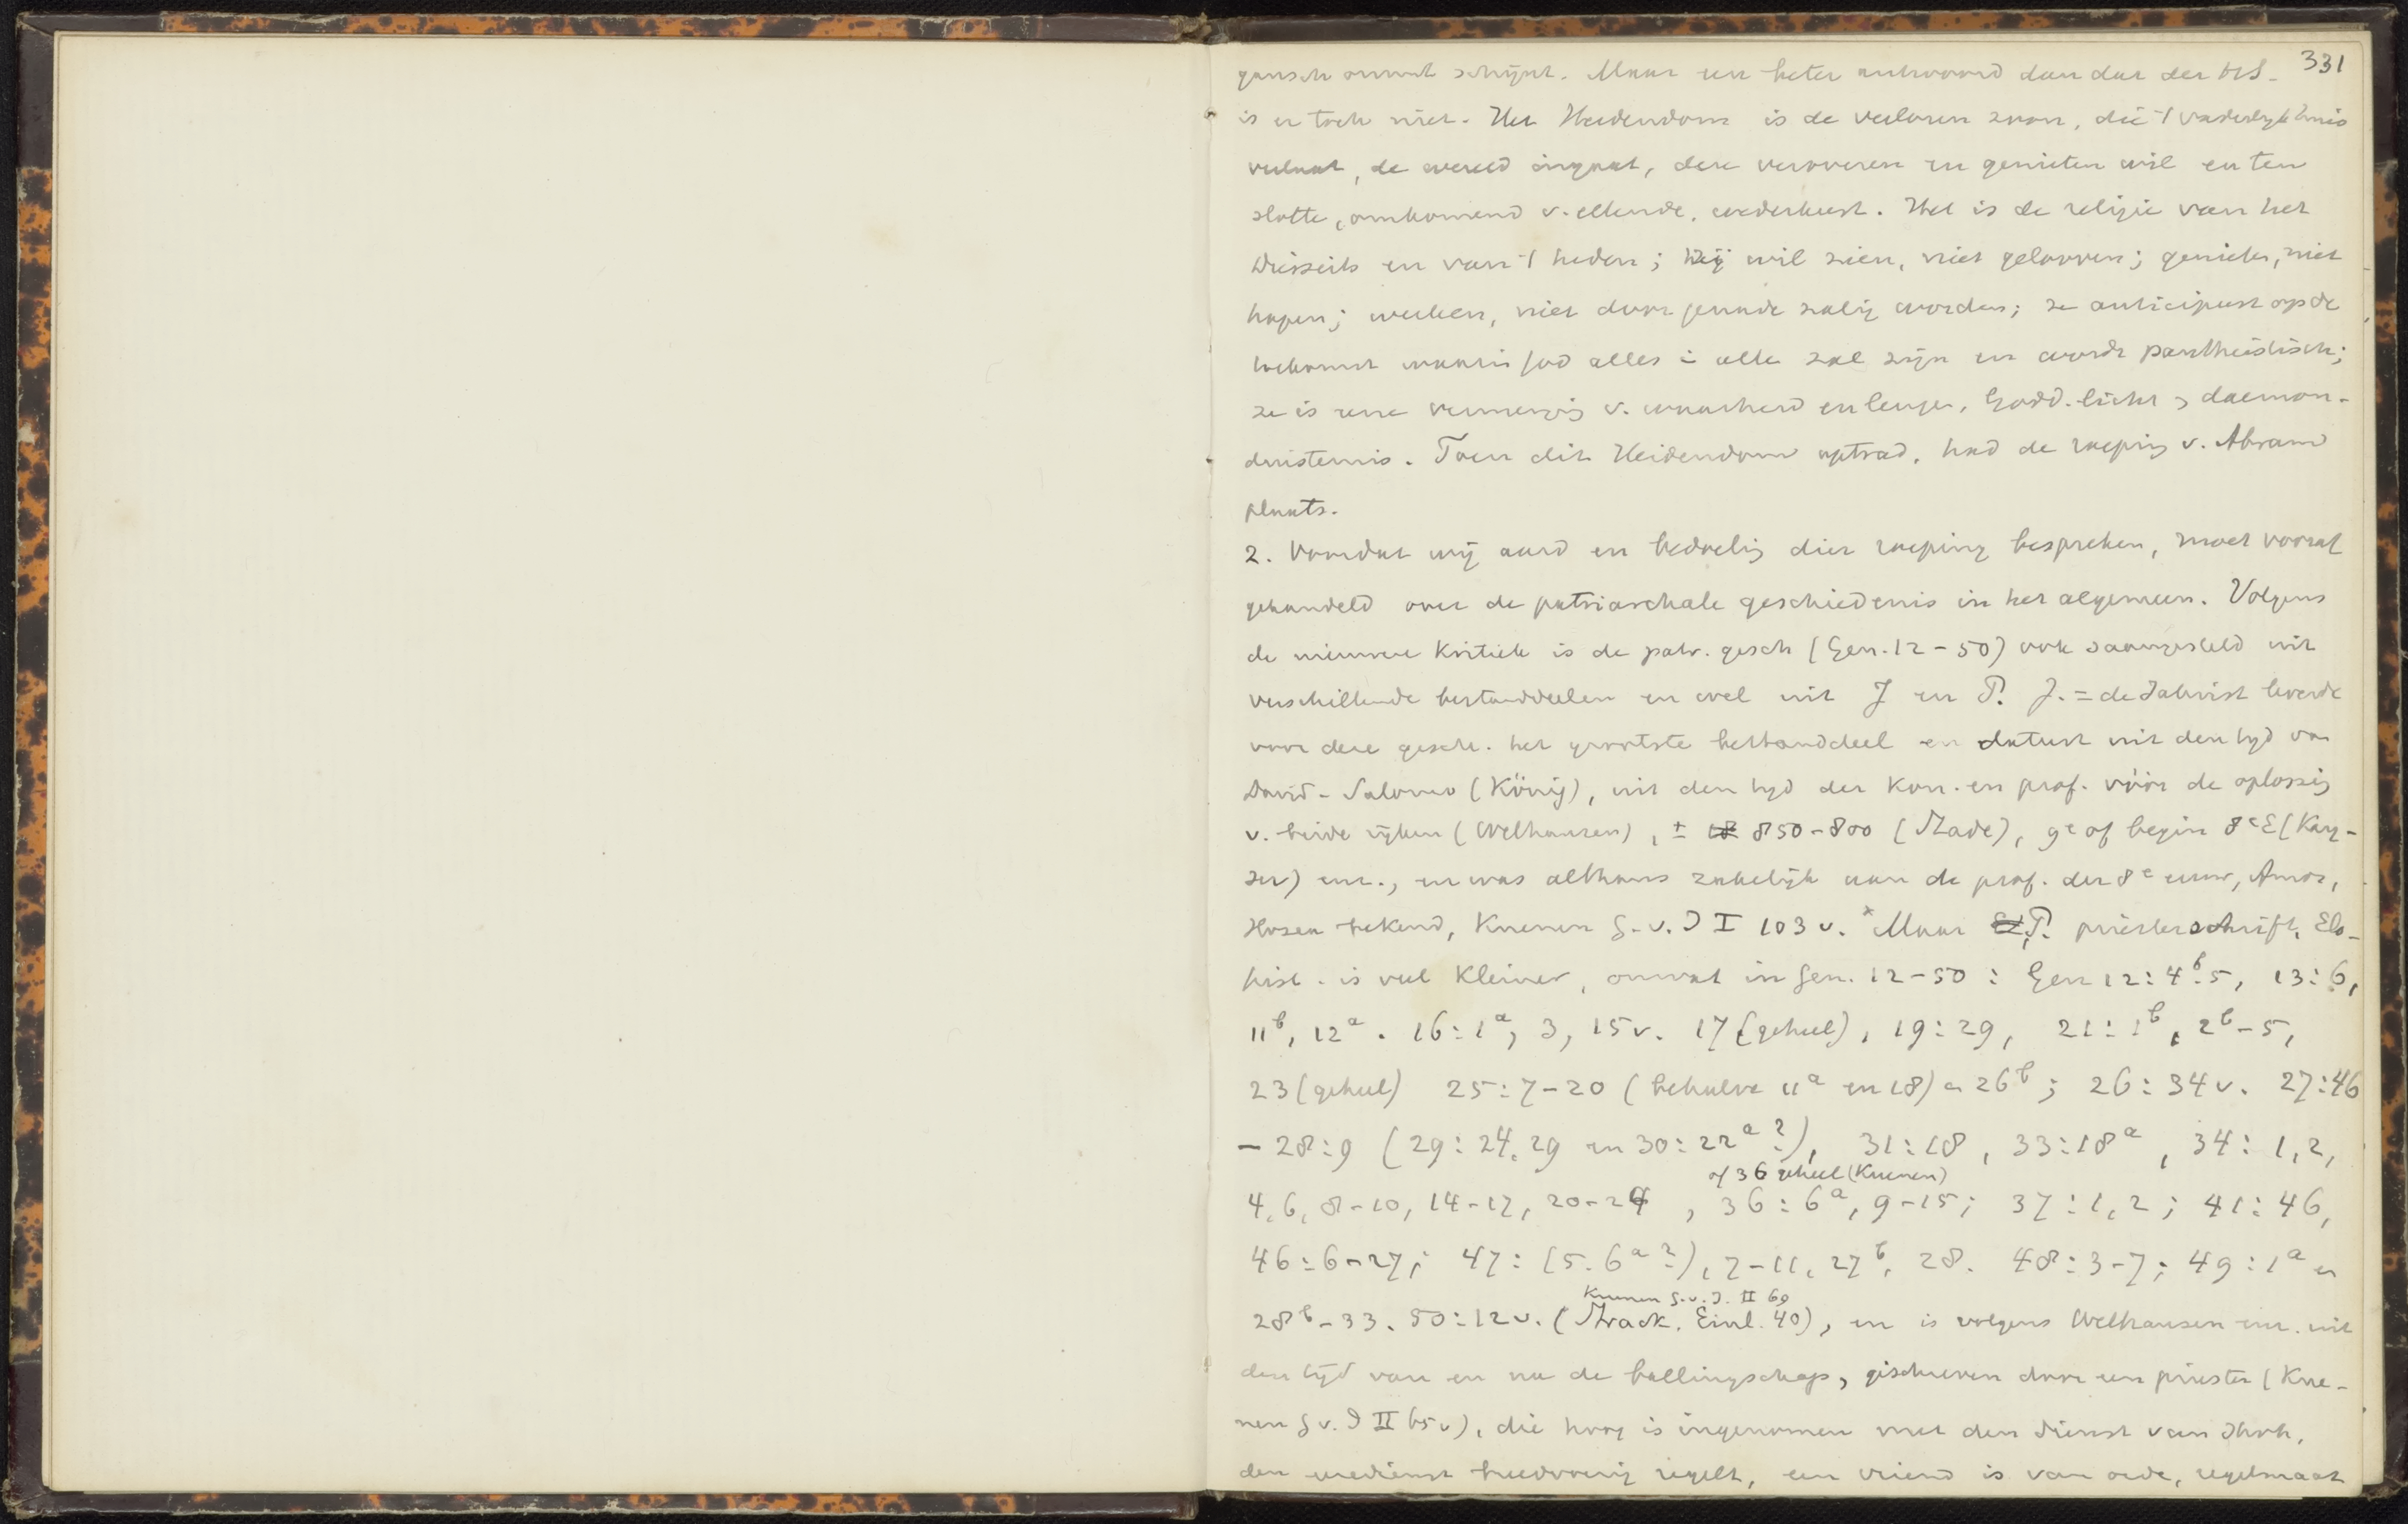 331
gansch onwaar schijnt. Maar een beter antwoord dan dat der H.S.
is er toch niet. Het Heidendom is de verloren zoon, die 't vaderlijk huis
verlaat, de wereld ingaat, deze veroveren en genieten wil en ten
slotte, omkomend v. ellende, wederkeert. Het is de religie van het
Diesseits en van 't heden; hij wil zien, niet gelooven; genieten, niet
hopen; werken, niet door genade zalig worden; ze anticipeert op de
toekomst waarin God alles in alle zal zijn en wordt pantheïstisch;
ze is eene vermenging v. waarheid en leugen, Godd. licht en daemon.
duisternis. Toen dit Heidendom optrad, had de roeping v. Abram
plaats.
2. Voordat wij aard en bedoeling dier roeping bespreken, moet vooraf
gehandeld over de patriarchale geschiedenis in het algemeen. Volgens
de nieuwere Kritiek is de patr. gesch (Gen. 12-50) ook saamgesteld uit
verschillende bestanddeelen en wel uit J en P. J. = de Jahvist leverde
voor deze gesch. het grootste bestanddeel en dateert uit den tijd van
David-Salomo (König), uit den tijd der Kon. en prof. vóór de oplossing
v. beide rijken (Welhausen), ± 850-800 (Stade), 9e of begin 8e E (Kay-
ser) enz., en was althans zakelijk aan de prof. der 8e eeuw, Amos,
Hosea bekend, Kuenen G.v.I I 103 v. x Maar P. priesterschrift, Elo-
hist. is veel Kleiner, omvat in Gen. 12-50: Gen 12:4b.5, 13:6,
11b, 12a. 16:1a, 3, 15v. 17 (geheel), 19:29, 21:1b, 2b-5,
23 (geheel) 25:7-20 (behalve 11a en 18) en 26b; 26:34v. 27:46
- 28:9 (29:24.29 en 30:22a?), 31:18, 33:18a, 34:1,2,
of 36 geheel (Kuenen)
4,6,8-10,14-17,20-24, 36:6a, 9-15; 37:1,2; 41:46,
46:6-27; 47:(5.6a?), 7-11, 27b, 28. 48:3-7; 49:1a en
Kuenen G.v.I. II 69
28b-33. 50:12v. (Strack. Einl. 40), en is volgens Welhausen enz. uit
den tijd van en na de ballingschap, geschreven door een priester (Kue-
nen G v. I II 65v), die hoog is ingenomen met den dienst van Jhvh,
den eredienst breedvoerig regelt, een vriend is van orde, regelmaat